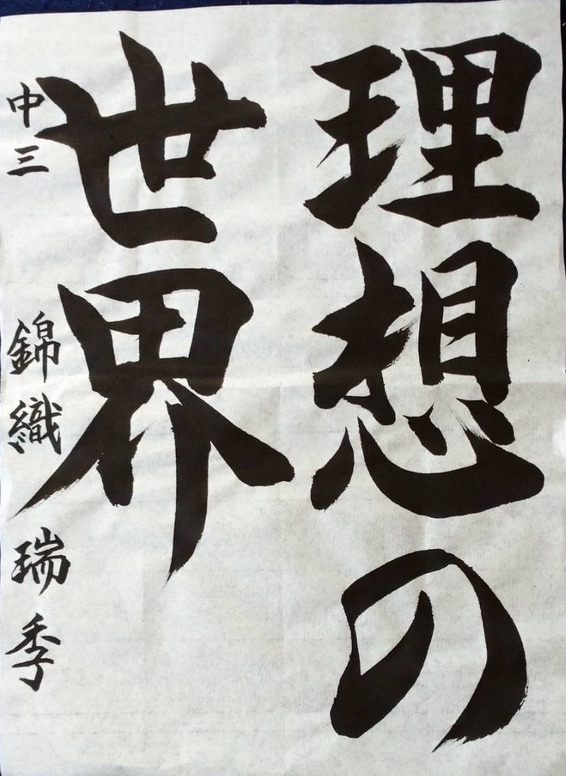 理想の
世界
中三 錦織 瑞季